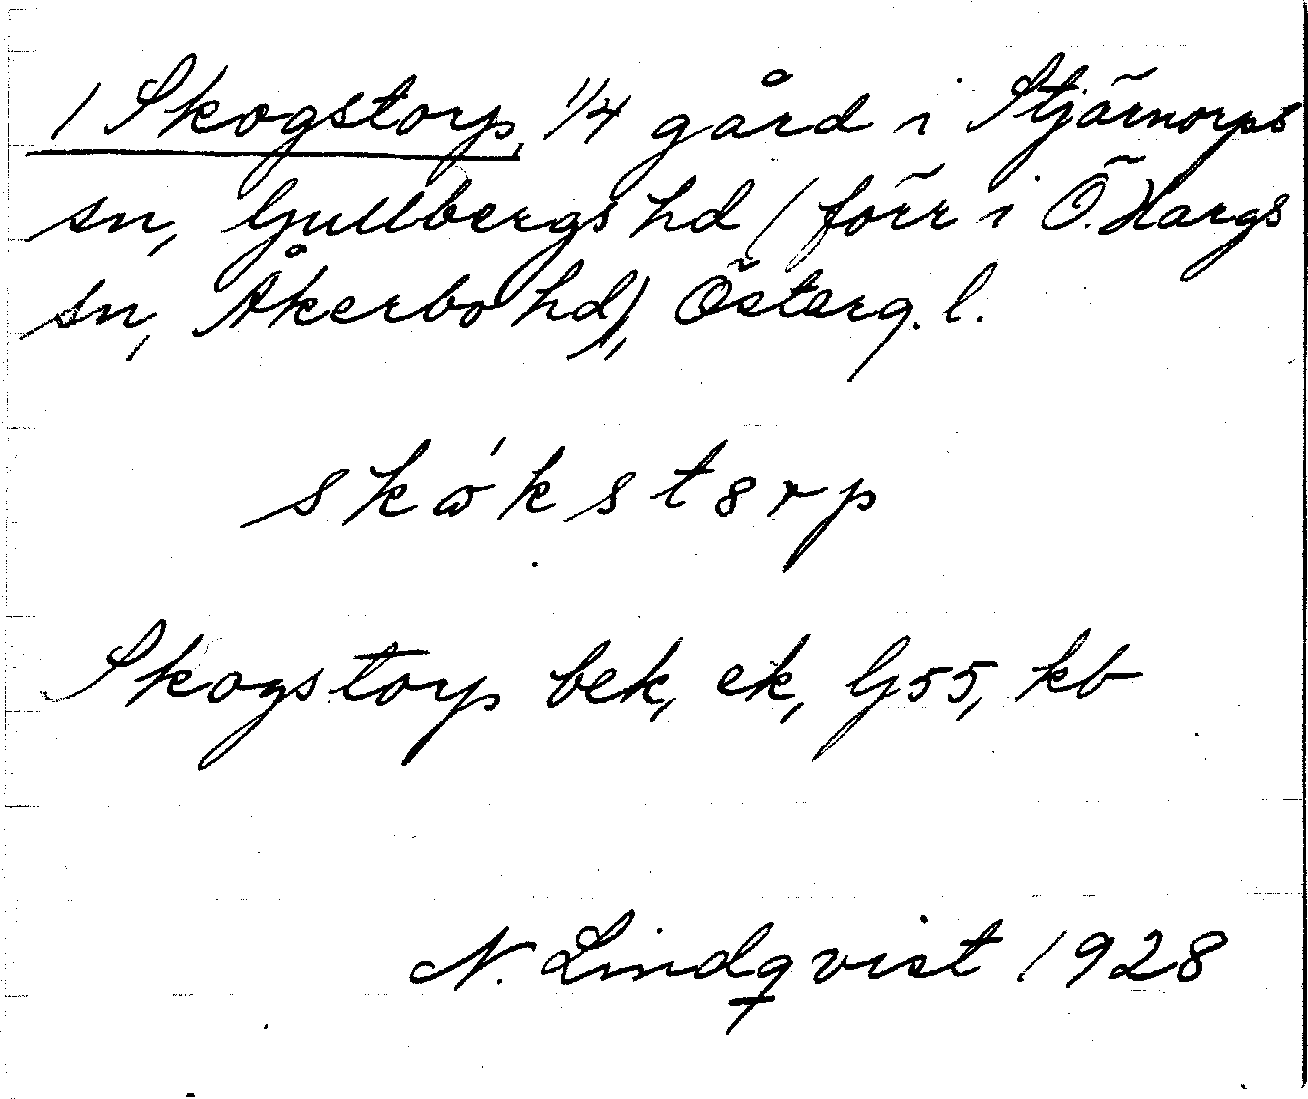 1 Skogstorp, 1/4 gård i Stjärnorps
sn, Gullbergs hd (förr i Ö. Hargs
sn, Åkerbo hd), Österg. l.
skώkst8rp
Skogstorp bek, ek, G55, kb
N. Lindqvist 1928